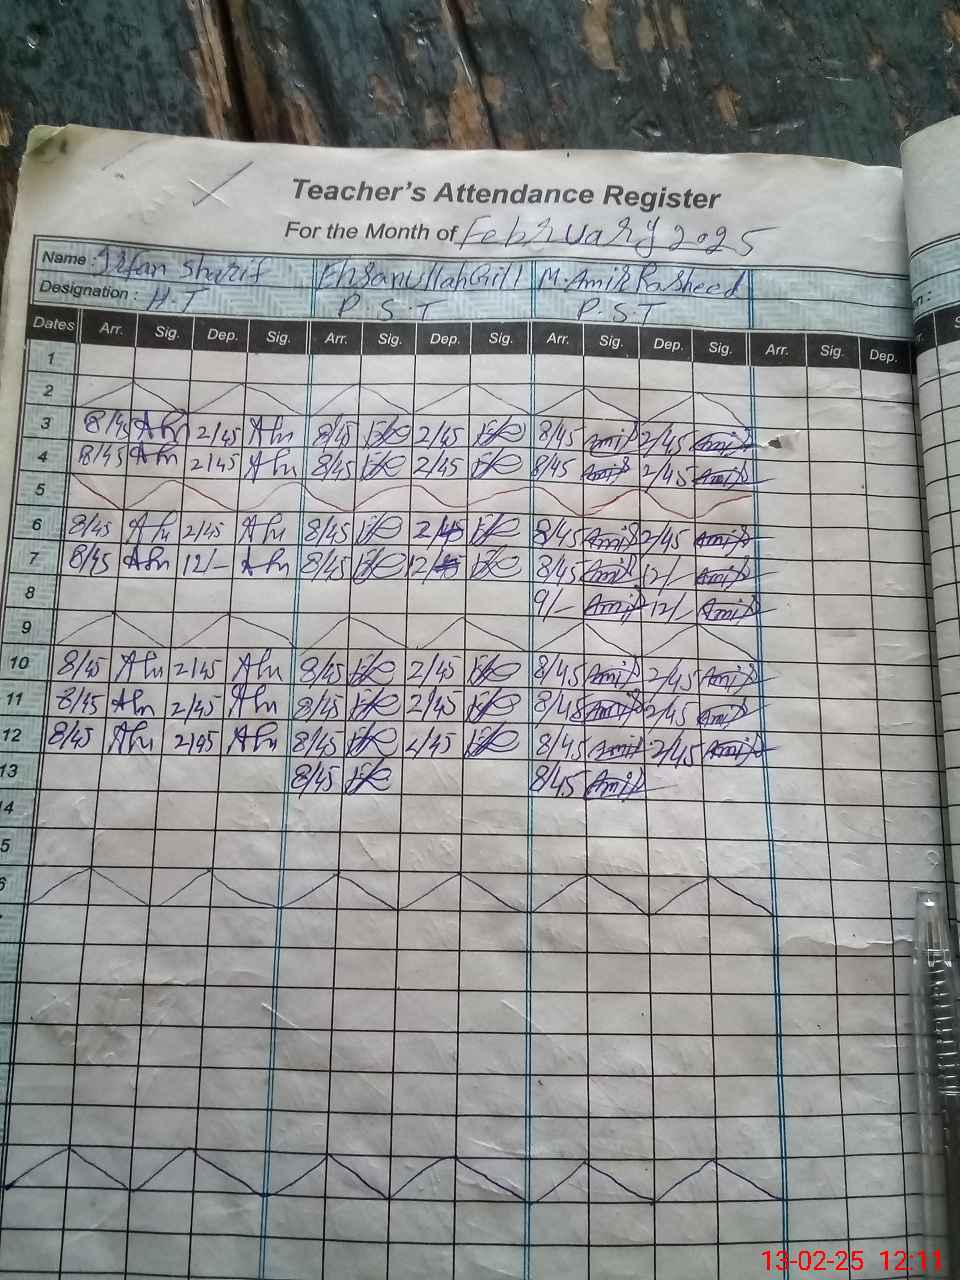 Teacher's Attendance Register
For the Month of February 2025
Name : Irfan Sharif Ehsanullah Gill M. Amir Rasheed
Designation : H.T P.S.T P.S.T
Dates Arr. Sig. Dep. Sig. Arr. Sig. Dep. Sig. Arr. Sig. Dep. Sig. Arr. Sig. Dep.
1
2
3 8/45 2/45 8/45 2/45 8/45 Amir 2/45 Amir
4 8/45 2/45 8/45 2/45 8/45 Amir 2/45 Amir
5
6 8/45 2/45 8/45 2/45 8/45 Amir 2/45 Amir
7 8/45 12/- 8/45 12/ 8/45 Amir 12/- Amir
8 9/- Amir 12/- Amir
9
10 8/45 2/45 8/45 2/45 8/45 Amir 2/45 Amir
11 8/45 2/45 8/45 2/45 8/45 Amir 2/45 Amir
12 8/45 2/45 8/45 2/45 8/45 Amir 2/45 Amir
13 8/45 8/45 Amir
4
5
6
13-02-25 12:11